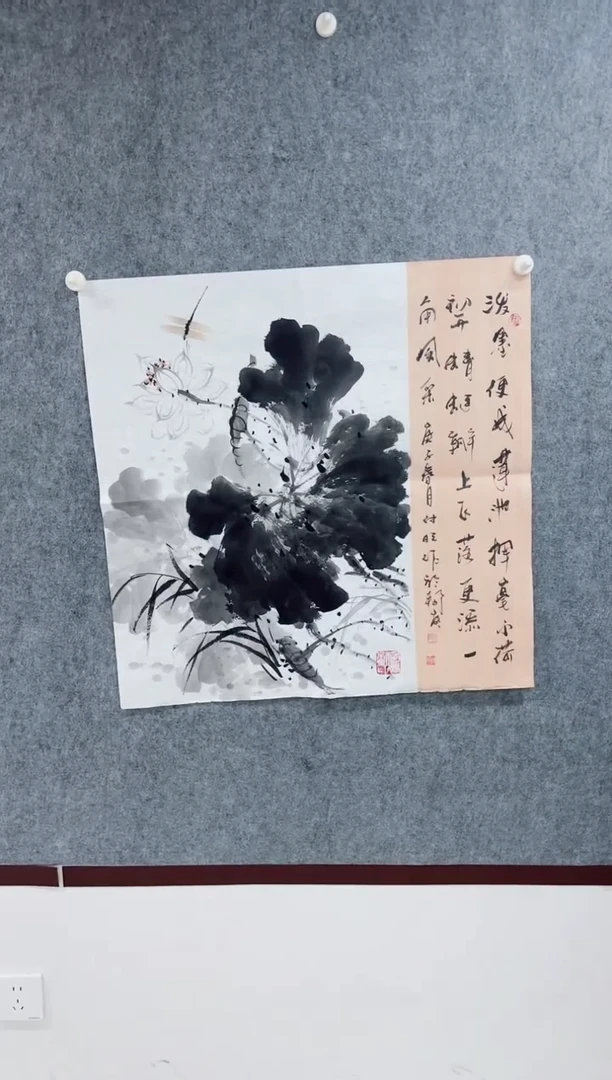 泼墨便成池挥毫小荷
初开蜻蜓瓣上飞落更添一
角风采 庚子春月付旺作於